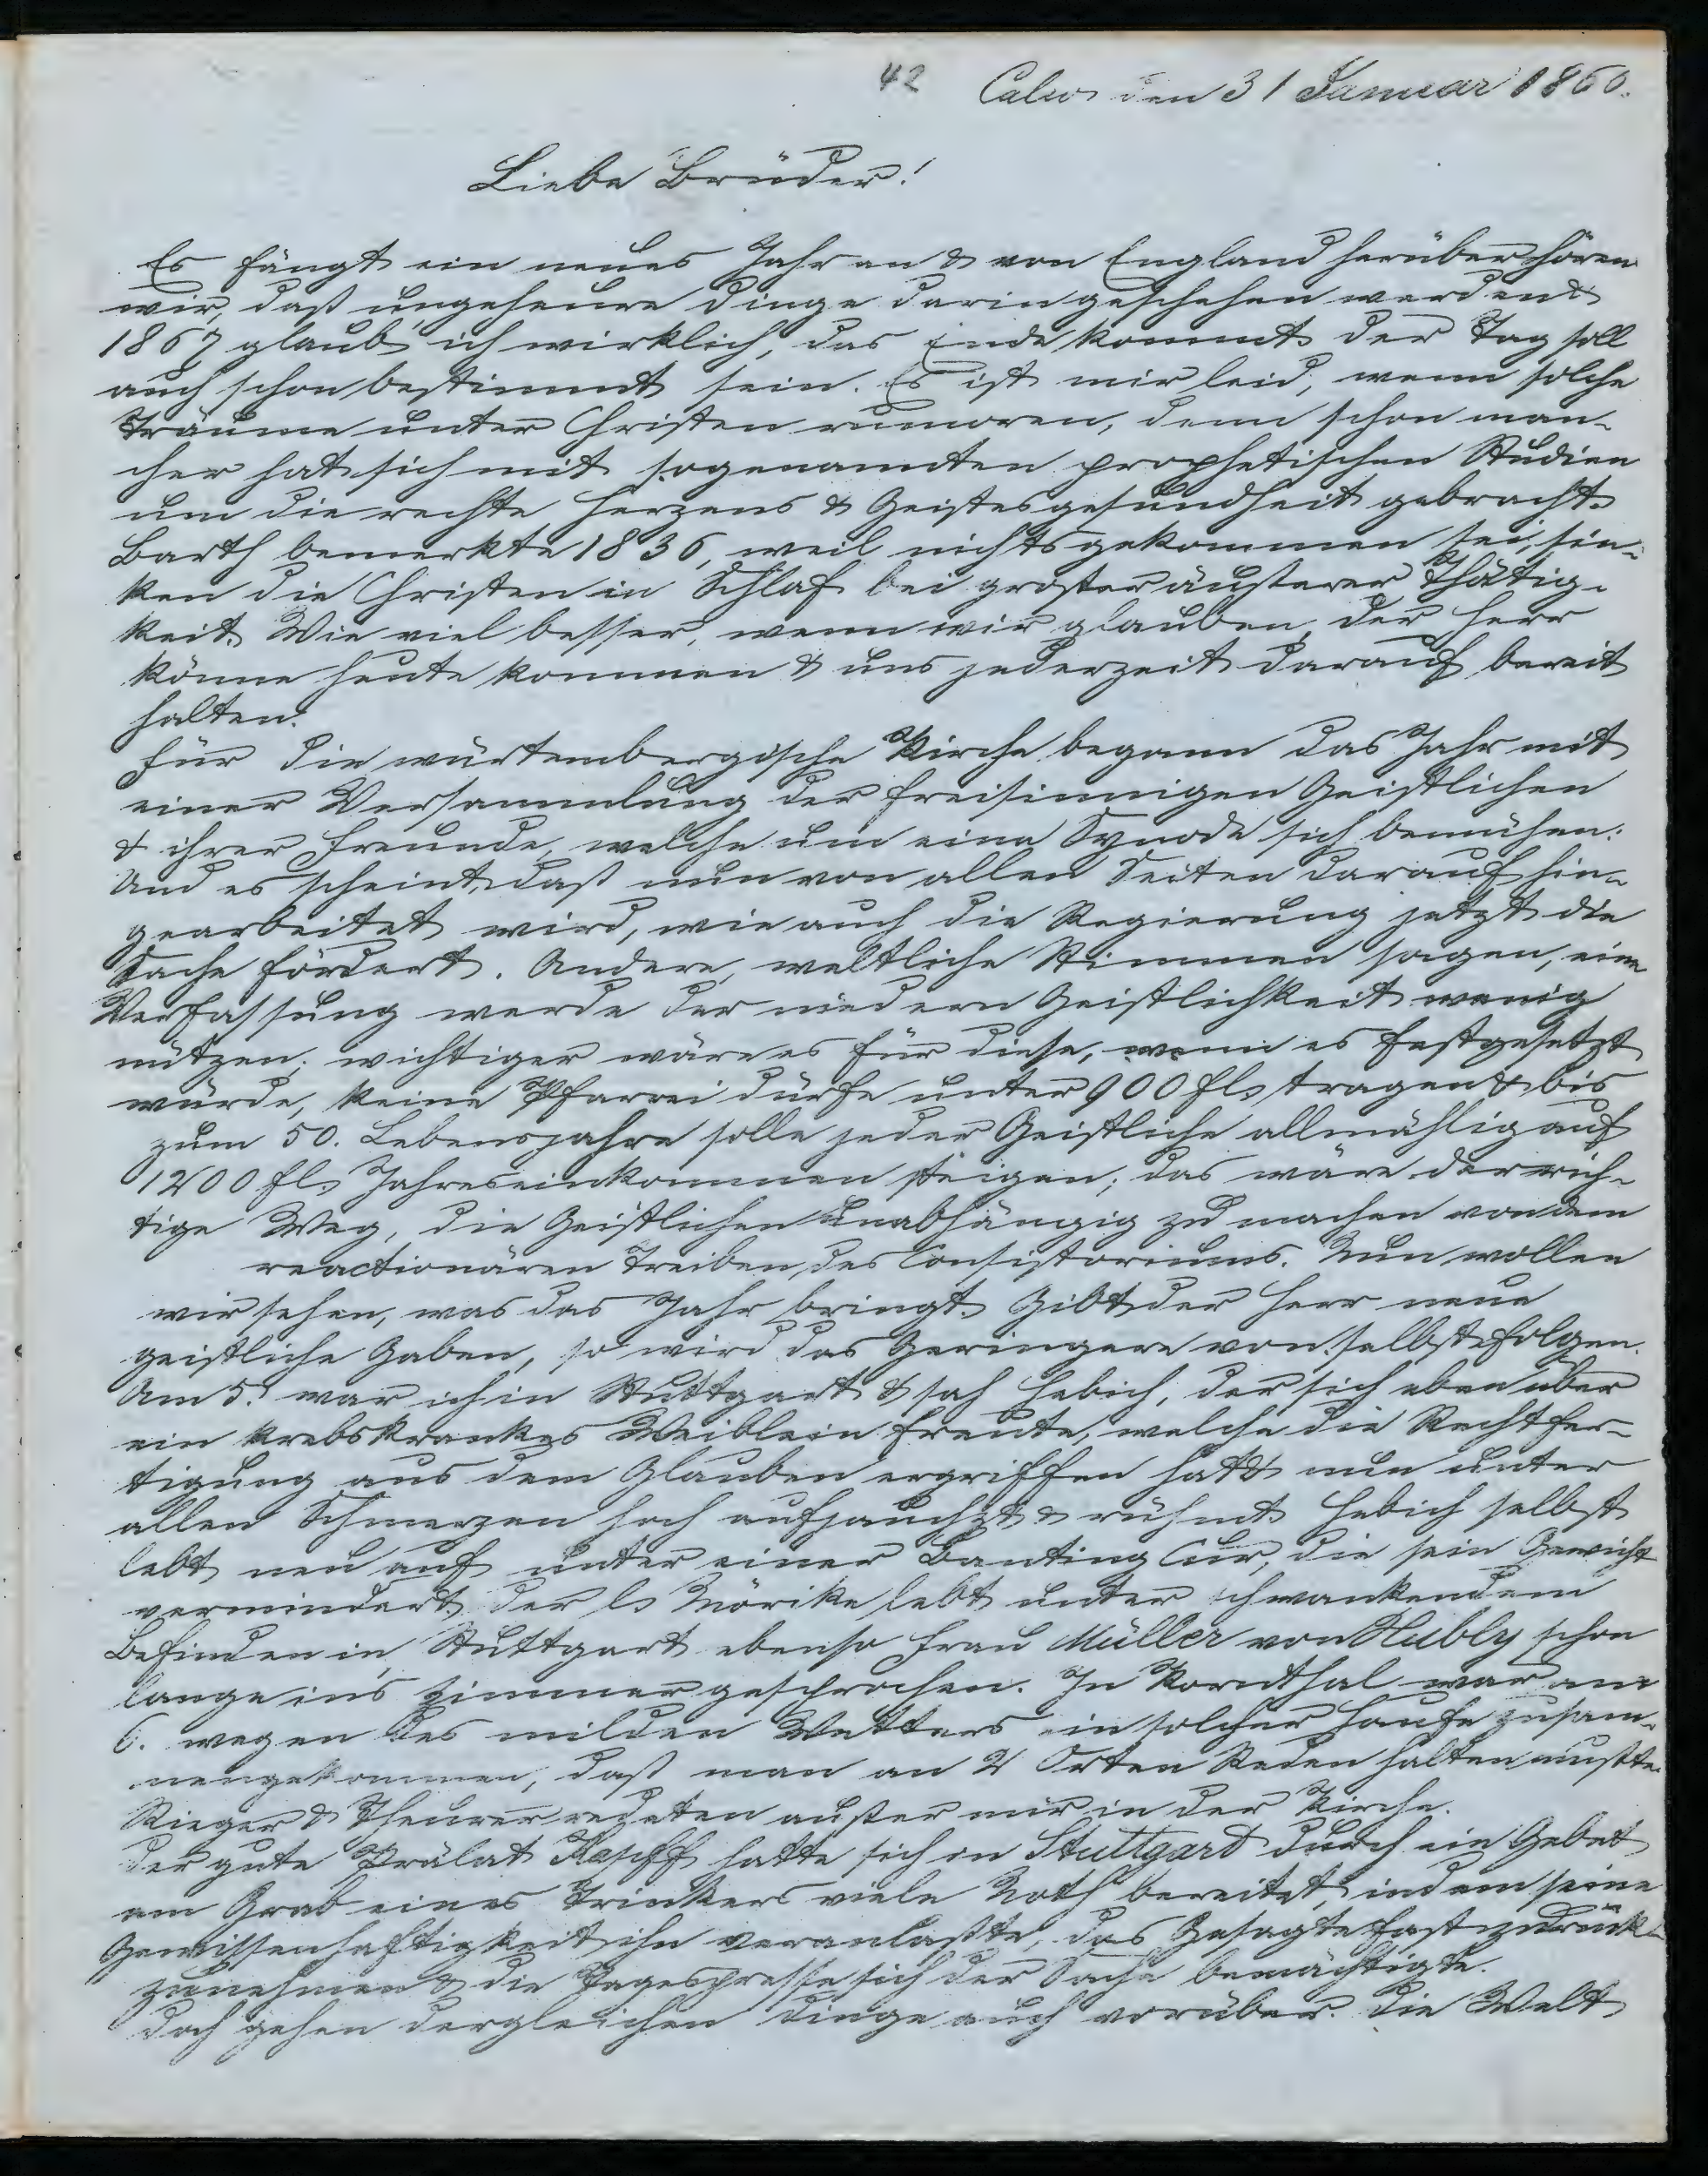 42 Calw den 31 Januar 1860.
Liebe Brüder!
Es fängt ein neues Jahr an & von England herüber hören
wir, daß ungeheure Dinge darin geschehen werden &
1867 glaub ich wirklich, das Ende kommt. Der Tag soll
auch schon bestimmt sein. Es ist mir leid, wenn solche
Träume unter Christen rumoren, denn schon man-
cher hat sich mit sogenannten prophetischen Studien
um die rechte Herzens & Geistesgesundheit gebracht.
Barth bemerkte 1836, weil nichts gekommen sei, sin-
ken die Christen in Schlaf bei großer äußerer Thätig-
keit. Wie viel besser, wenn wir glauben, der Herr
könne heute kommen & uns jederzeit darauf bereit
halten.
Für die würtembergische Kirche begann das Jahr mit
einer Versammlung der freisinnigen Geistlichen
& ihrer Freunde, welche um eine Synode sich bemühen.
Und es scheint, daß nun von allen Seiten darauf hin-
gearbeitet wird, wie auch die Regierung jetzt die
Sache fördert. Andere, weltliche Stimmen sagen, eine
Verfassung werde der niedern Geistlichkeit wenig
nützen; wichtiger wäre es für diese, wenn es festgesetzt
würde, keine Pfarrei dürfe unter 900 fl. tragen & bis
zum 50. Lebensjahre solle jeder Geistliche allmählig auf
1200 fl. Jahreseinkommen steigen; das wäre der rich-
tige Weg, die Geistlichen unabhängig zu machen von dem
reactionären Treiben des Consistoriums. Nun wollen
wir sehen, was das Jahr bringt. Gibt der Herr neue
geistliche Gaben, so wird das Geringere von selbst folgen.
Am 5. war ich in Stuttgart & sah Hebich, der sich eben über
ein krebskrankes Weiblein freute, welche die Rechtfer-
tigung aus dem Glauben ergriffen hat & nun unter
allen Schmerzen hoch aufjauchzt & rühmt. Hebich selbst
lebt neu auf unter einer Banting Cur, die sein Gewicht
vermindert. Der l. Mörike lebt unter schwankendem
Befinden in Stuttgart ebenso Frau Müller von Hubly schon
lange in's Zimmer gesprochen. In Kornthal war am
6. wegen des milden Wetters ein solcher Haufe zusam-
mengekommen, daß man an 2 Orten Reden halten mußte.
Rieger & Theurer redeten außer mir in der Kirche.
Der gute Prälat Kapff hatte sich in Stuttgard durch ein Gebet
am Grab eines Trinkers viele Noth bereitet, indem seine
Gewissenhaftigkeit ihn veranlaßte, das Gesagte fast zurück-
zunehmen & die Tagespresse sich der Sache bemächtigte.
Doch gehen dergleichen Dinge auch vorüber. Die Welt